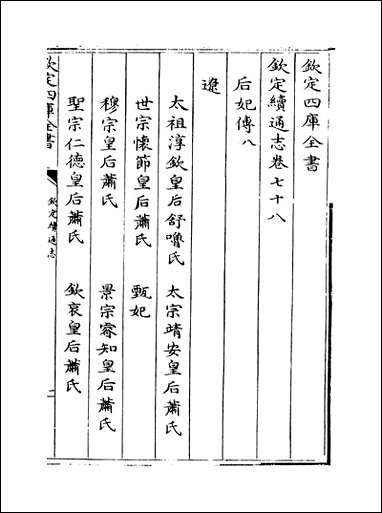 欽定四庫全書
欽定續通志卷七十八
后妃傳八
遼
太祖淳欽皇后舒嚕氏　太宗靖安皇后蕭氏
世宗懷節皇后蕭氏　甄妃
穆宗皇后蕭氏　景宗睿知皇后蕭氏
聖宗仁德皇后蕭氏　欽哀皇后蕭氏
欽定四庫全書
欽定續通志